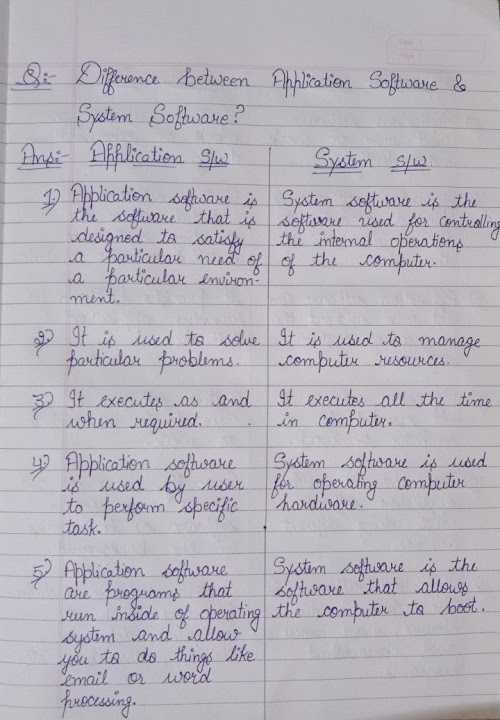 Q:- Difference between Application Software &
System Software?
Ans:- Application S/W
System S/W
1) Application software is
the software that is
designed to satisfy
a particular need of
a particular environ-
ment.
System software is the
software used for controlling
the internal operations
of the computer.
2) It is used to solve
particular problems.
It is used to manage
computer resources.
3) It executes as and
when required.
It executes all the time
in computer.
4) Application software
is used by user
to perform specific
task.
System software is used
for operating computer
hardware.
5) Application software
are programs that
run inside of operating
system and allow
you to do things like
email or word
processing.
System software is the
software that allows
the computer to boot.